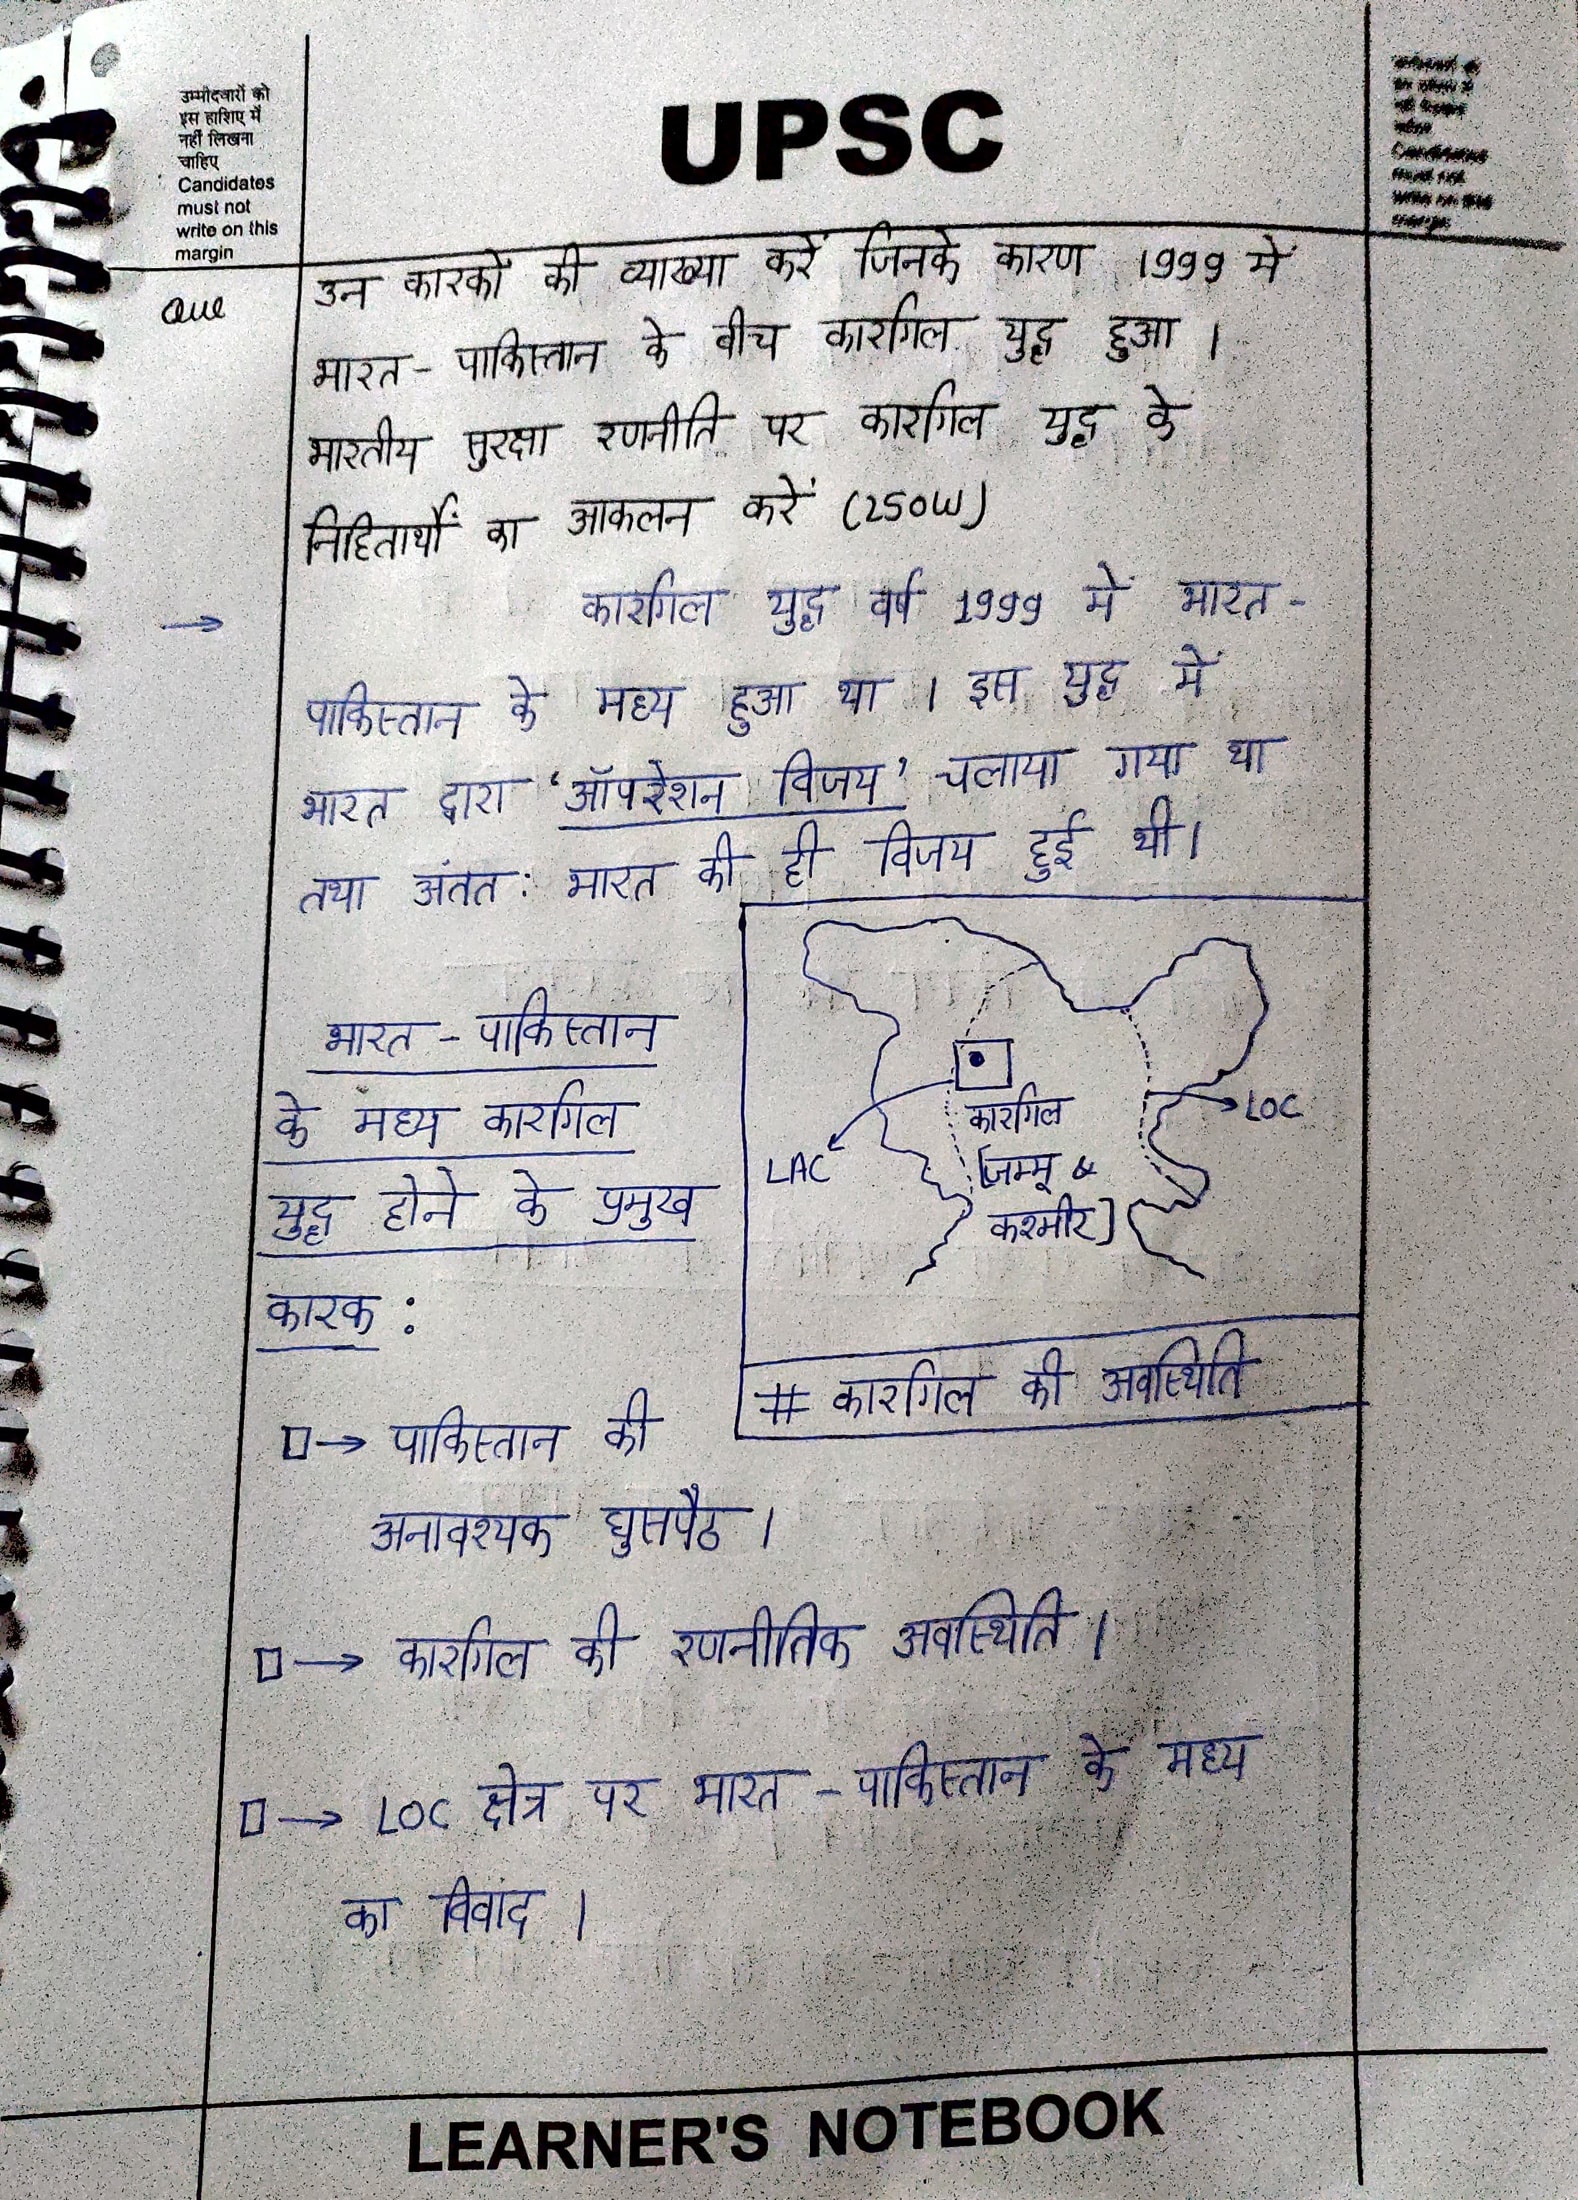 उम्मीदवारों को
इस हाशिए में
नहीं लिखना
चाहिए
Candidates
must not
write on this
margin
UPSC
Que
उन कारकों की व्याख्या करें जिनके कारण 1999 में
भारत - पाकिस्तान के बीच कारगिल युद्ध हुआ ।
भारतीय सुरक्षा रणनीति पर कारगिल युद्ध के
निहितार्थों का आकलन करें (250W)
→ कारगिल युद्ध वर्ष 1999 में भारत -
पाकिस्तान के मध्य हुआ था । इस युद्ध में
भारत द्वारा 'ऑपरेशन विजय' चलाया गया था
तथा अंततः भारत की ही विजय हुई थी।
भारत - पाकिस्तान
के मध्य कारगिल
युद्ध होने के प्रमुख
कारक :
कारगिल
[जम्मू &
कश्मीर]
LAC
LOC
# कारगिल की अवस्थिति
→ पाकिस्तान की
अनावश्यक घुसपैठ ।
→ कारगिल की रणनीतिक अवस्थिति ।
→ LOC क्षेत्र पर भारत - पाकिस्तान के मध्य
का विवाद ।
LEARNER'S NOTEBOOK